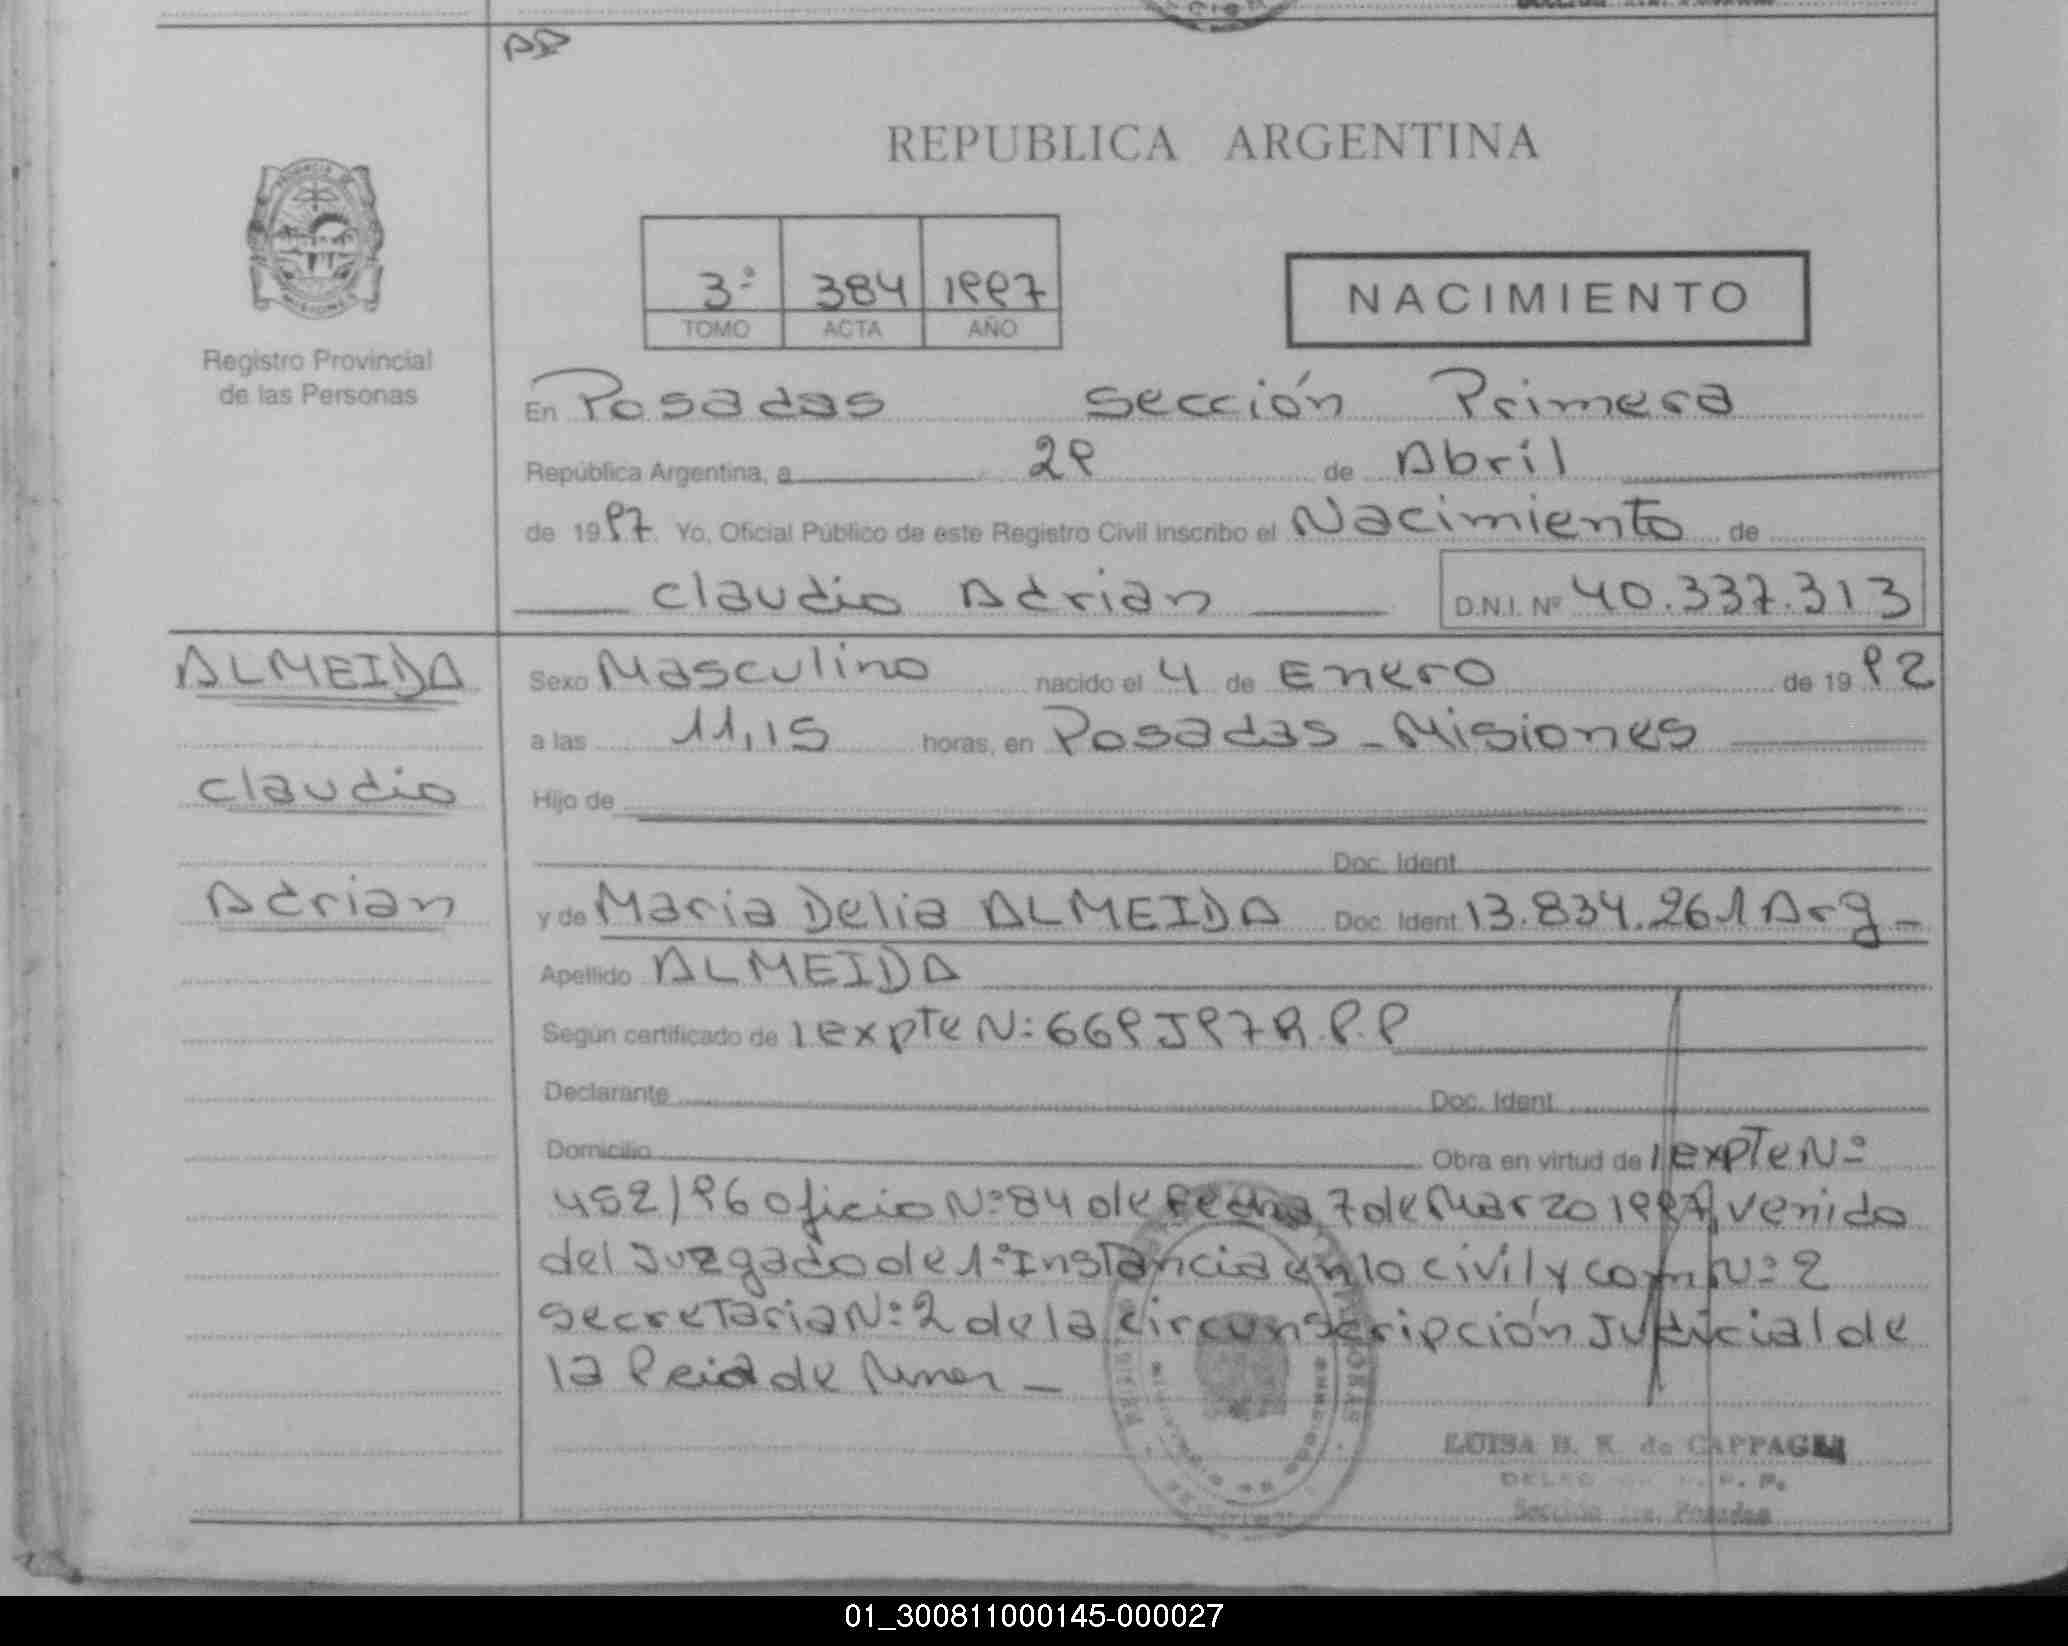 REPUBLICA ARGENTINA
3º 384 1997
TOMO ACTA AÑO
NACIMIENTO
Registro Provincial
de las Personas
En Posadas Sección Primera
República Argentina, a 29 de Abril
de 1997. Yo, Oficial Público de este Registro Civil inscribo el Nacimiento de
Claudio Adrian D.N.I. Nº 40.337.313
ALMEIDA
Claudio
Adrian
Sexo Masculino nacido el 4 de Enero de 1992
a las 11,15 horas, en Posadas - Misiones
Hijo de
Doc. Ident.
y de Maria Delia ALMEIDA Doc. Ident 13.834.261 Arg -
Apellido ALMEIDA
Según certificado de 1 expte Nº 669 J 97 R.P.P
Declarante Doc. Ident.
Domicilio Obra en virtud de 1 expte Nº
452/96 oficio Nº 84 de fecha 7 de Marzo 1997, venido
del Juzgado de 1º Instancia en lo civil y com Nº 2
secretaria Nº 2 de la circunscripción Judicial de
la Pcia de -
LUISA H. K. de CAPPAGLI
Sección 1ra. Posadas
01_300811000145-000027